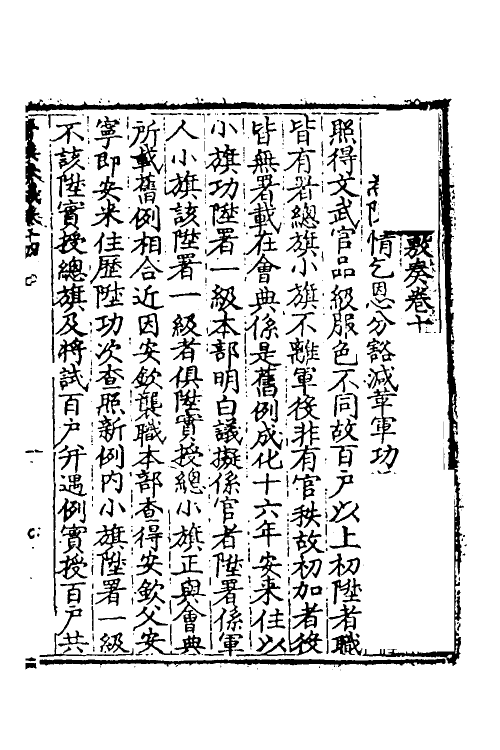 敷奏卷十
情乞恩分豁減革軍功
照得文武官品級服色不同故百戶以上初陞者職
皆有署總旗小旗不離軍役非有官秩故初加者役
皆無署載在會典係是舊例成化十六年安來住以
小旗功陞署一級本部明白議擬係官者陞署係軍
人小旗該陞署一級者俱陞實授總小旗正與會典
所載舊例相合近因安欽襲職本部查得安欽父安
寧即安來住歷陞功次查照新例內小旗陞署一級
不該陞實授總旗及將試百戶并遇例實授百戶共